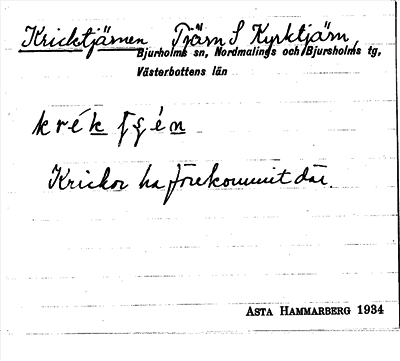 Kricktjärnen Tjärn S Kyrktjärn,
Bjurholms sn, Nordmalings och Bjursholms tg,
Västerbottens län
Krickor ha förekommit där.
ASTA HAMMARBERG 1934